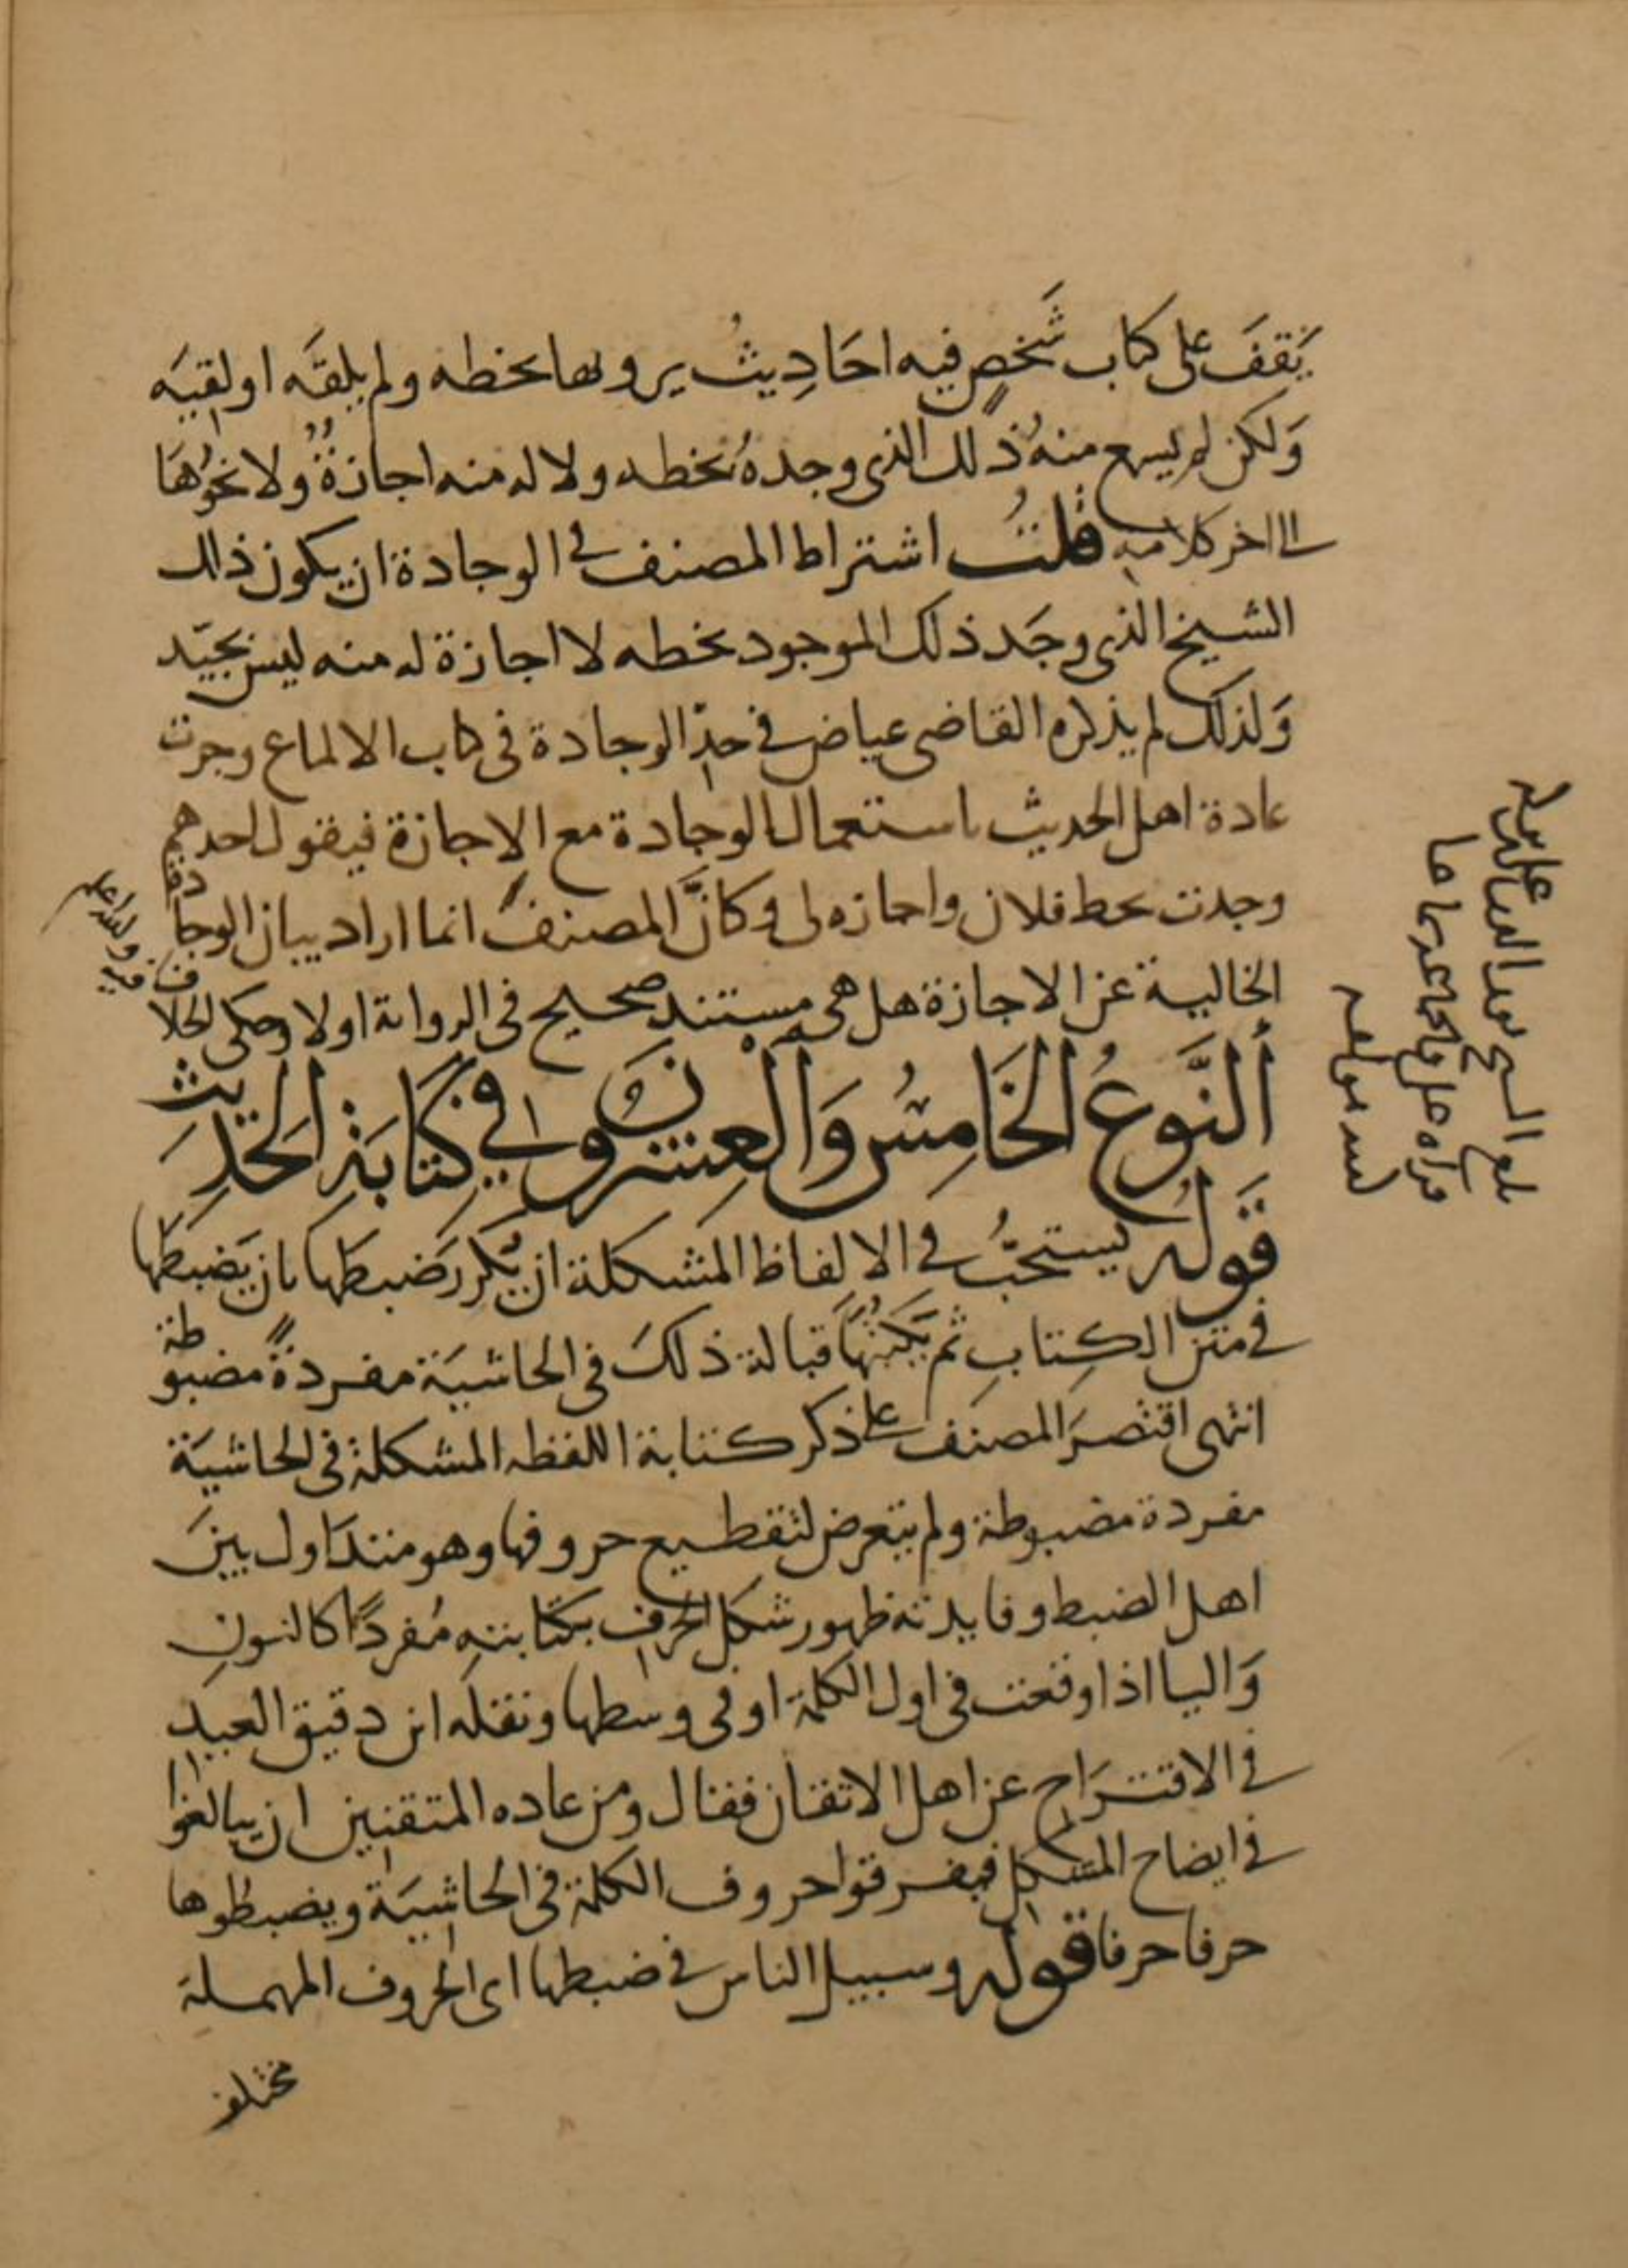 يَقِفَ على كتاب شَخصٍ فيه احَادِيثُ يرويها بخطه ولم يلقَه او لقيَه
وَلكن لم يسمع منهُ ذلك الذى وجدهُ بخطه ولا له منه اجازةٌ ولا نحوُهَا
الى اخر كلامه قلتُ اشتراط المصنف فى الوجادة ان يكون ذلك
الشيخ الذى وجَد ذلك الموجود بخطه لا اجازة له منه ليس بجيّد
وَلذلك لم يذكره القاضى عياض فى حدّ الوجادة فى كتاب الالماع وجرت
عادة اهل الحديث باستعمال الوجادة مع الاجازة فيقول احدهم
وجدت بخط فلان واجازه لى وكانَّ المصنفَ انما اراد بيان الوجادة
الخالية عن الاجازة هل هى مستند صحيح فى الرواية اولا وحكى الخلاف فيه والله اعلم
ألنَّوعُ الخَامِسُ وَالْعِشرُونَ فى كِتَابَةِ الحَدِيث
قَولُه يستحبُّ فى الالفاظ المشكلة ان يُكَررَ ضبطَها بان يَضبطَها
فى متن الكِتابِ ثم يَكتُبَهَا قبالة ذلكَ فى الحاشيَة مفردةً مضبوطة
انتهى اقتصرَ المصنف على ذكر كتابة اللفظه المشكلة فى الحاشيَة
مفردة مضبوطة ولم يتعرض لتقطيع حروفها وهو متدَاول بينَ
اهل الضبط وفايدته ظهور شكل الحرف بكتابتهِ مُفردًا كالنونِ
وَاليا اذا وقعت فى اول الكلمة او فى وسطها ونقلَه ابن دقيق العيد
فى الاقتَراح عن اهل الاتقان فقال ومن عاده المتقنين ان يبالغوا
فى ايضاح المشكل فيفرقوا حروف الكلمة فى الحاشيَة ويضبطُوها
حرفا حرفا قوله وسبيل الناس فى ضبطها اى الحروف المهملة
مختلف